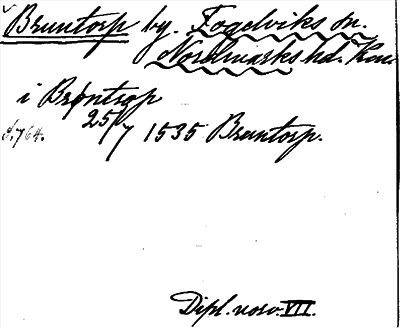 Bruntorp by. Fogelviks sn.
Nordmarks hd.
i Brøntrop
25/7 1535 Bruntorp.
s. 764.
Dipl. norv. VII.